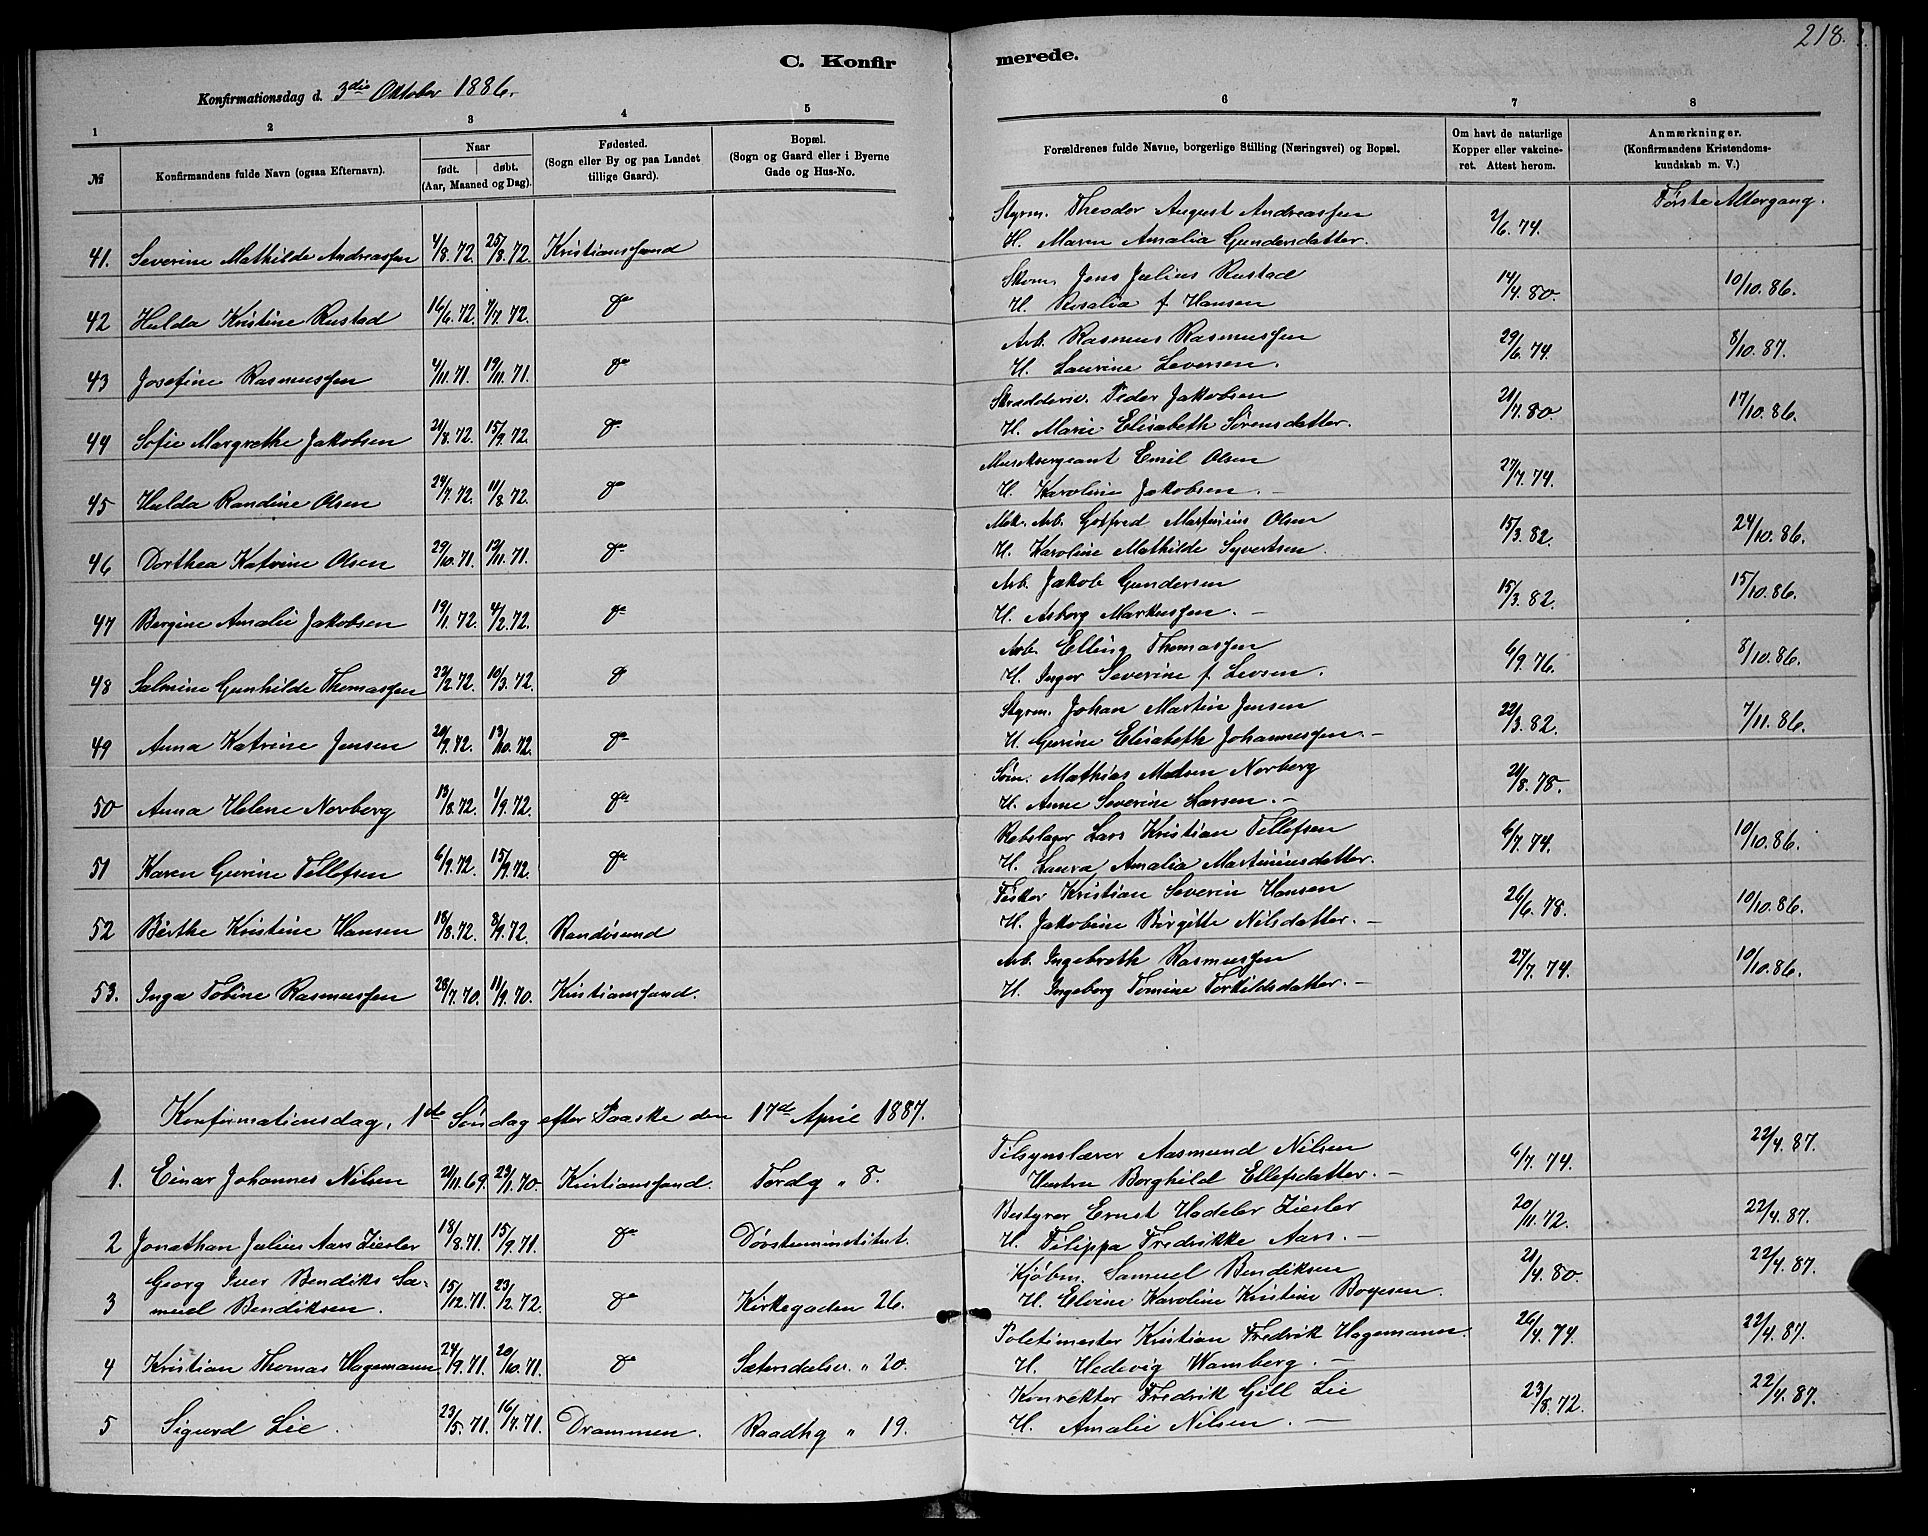 218.
C. Konfirmerede.
Konfirmationsdag d. 3die Oktober 1886.
1 2 3 4 5 6 7 8
№
Konfirmandens fulde Navn (ogsaa Efternavn).
Naar
født. døbt.
(Aar, Maaned og Dag).
Fødested.
(Sogn eller By og paa Landet
tillige Gaard).
Bopæl.
(Sogn og Gaard eller i Byerne
Gade og Hus-No.
Forældrenes fulde Navne, borgerlige Stilling (Næringsvei) og Bopæl.
Om havt de naturlige
Kopper eller vakcine-
ret. Attest herom.
Anmærkninger.
(Konfirmandens Kristendoms-
kundskab m. V.)
Første Altergang.
Styrm. Theodor August Andreassen
41. Severine Mathilde Andreassen 4/8.72. 25/8.72. Kristianssand H. Maren Amalia Gundersdatter. 2/6.74.
Skom. Jens Julius Rustad
42 Hulda Kristine Rustad 16/6.72. 7/7.72. do H. Rosalia f. Hansen 14/4.80. 10/10.86.
Arb. Rasmus Rasmussen
43 Josefine Rasmussen 4/11.71. 19/11.71. do H. Laurine Leversen. 29/6.74. 8/10.87.
Skræddersv. Peder Jakobsen
44 Sofie Margrethe Jakobsen 21/8.72. 15/9.72. do H. Marie Elisabeth Sørensdatter. 21/7.80 17/10.86.
Musiksergeant Emil Olsen
45 Hulda Randine Olsen 24/7.72. 11/8.72. do H. Karoline Jakobsen. – 27/7.74.
Mek. Arb. Gotfred Martinius Olsen
46 Dorthea Katrine Olsen 29/10.71. 12/11.71. do H. Karoline Mathilde Syvertsen. 15/3.82. 24/10.86.
Arb. Jakob Gundersen
47 Bergine Amalie Jakobsen 19/1.72. 4/2.72. do H. Asborg Markussen. – 15/3.82. 15/10.86.
Arb. Elling Thomassen
48 Salmine Gunhilde Thomassen 22/2.72. 10/3.72. do H. Inger Severine f. Levsen. 6/9.76. 8/10.86.
Styrm. Johan Martin Jensen
49 Anna Katrine Jensen 20/9.72. 13/10.72. do H. Gurine Elisabeth Johannessen. – 22/3.82. 7/11.86.
Søm. Mathias Madsen Norberg
50 Anna Helene Norberg 13/8.72. 1/9.72. do H. Anne Severine Larsen. – 21/8.78.
Rebslager Lars Kristian Tellefsen
51 Karen Gurine Tellefsen 6/9.72. 15/9.72. do H. Laura Amalia Martiniusdatter. 6/7.74. 10/10.86.
Fisker Kristian Severin Hansen
52 Birthe Kristine Hansen 18/8.72. 8/9.72. Randøsund H. Jakobine Birgitte Nilsdatter. – 26/6.78. 10/10.86.
Arb. Ingebreth Rasmussen
53. Inga Tobine Rasmussen 28/7.70. 11/9.70. Kristianssand. H. Ingeborg Tomine Torkildsdatter. – 27/7.74. 10/10.86.
Konfirmationsdag, 1ste Søndag efter Paaske den 17de April 1887.
Tilsynslærer Aasmund Nilsen
1. Einar Johannes Nilsen 21/11.69. 23/1.70. Kristianssand. Tordg „ 8. Hustru Borghild Ellefsdatter. – 6/7.74. 22/4.87.
Bestyrer Ernst Hadeler Ziesler
2 Jonathan Julius Aars Ziesler 18/8.71. 15/9.71. do Døvstuminstitut. H. Filippa Fredrikke Aars. – 20/11.72. 22/4.87.
Georg Iver Bendiks Sa- Kjøbm. Samuel Bendiksen
3 muel Bendiksen. 15/12.71. 23/2.72. do Kirkegaden 26. H. Elvine Karoline Kristine Boyesen. 21/4.80. 22/4.87.
Politimester Kristian Fredrik Hagemann.
4 Kristian Thomas Hagemann 24/9.71. 20/10.71. do Sætersdalsv. „ 20. H. Hedevig Wamberg. – 26/4.74. 22/4.87.
Konrektor Fredrik Gill Lie
5 Sigurd Lie. 23/5.71. 16/7.71. Drammen. Raadhg „ 19. H. Amalie Nilsen. – 23/8.72. 22/4.87.